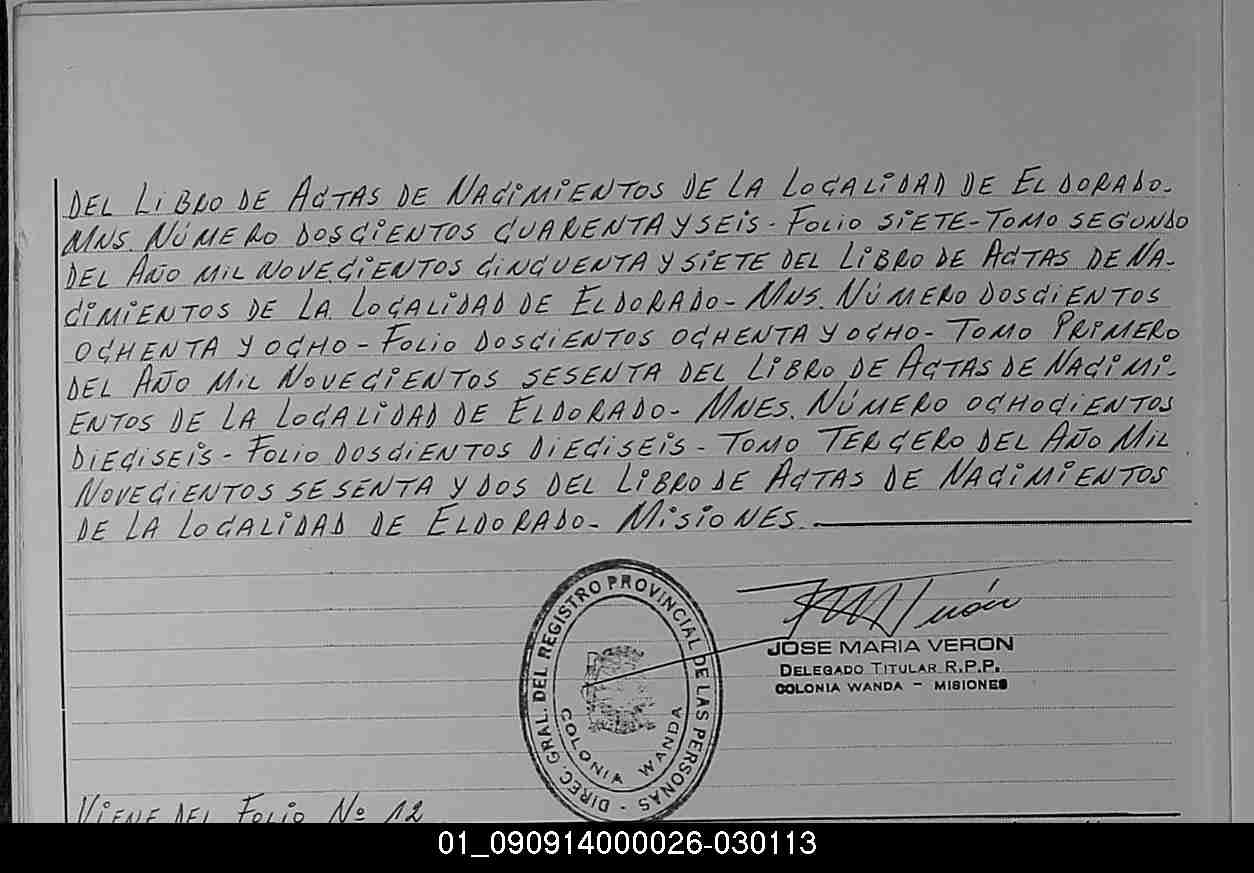 DEL LIBRO DE ACTAS DE NACIMIENTOS DE LA LOCALIDAD DE ELDORADO-
MNS. NÚMERO DOSCIENTOS CUARENTA Y SEIS - FOLIO SIETE - TOMO SEGUNDO
DEL AÑO MIL NOVECIENTOS CINCUENTA Y SIETE DEL LIBRO DE ACTAS DE NA-
CIMIENTOS DE LA LOCALIDAD DE ELDORADO - MNS. NÚMERO DOSCIENTOS
OCHENTA Y OCHO - FOLIO DOSCIENTOS OCHENTA Y OCHO - TOMO PRIMERO
DEL AÑO MIL NOVECIENTOS SESENTA DEL LIBRO DE ACTAS DE NACIMI-
ENTOS DE LA LOCALIDAD DE ELDORADO - MNES. NÚMERO OCHOCIENTOS
DIECISEIS - FOLIO DOSCIENTOS DIECISEIS - TOMO TERCERO DEL AÑO MIL
NOVECIENTOS SESENTA Y DOS DEL LIBRO DE ACTAS DE NACIMIENTOS
DE LA LOCALIDAD DE ELDORADO - MISIONES.
DIREC. GRAL. DEL REGISTRO PROVINCIAL DE LAS PERSONAS -
COLONIA WANDA
JOSE MARIA VERON
DELEGADO TITULAR R.P.P.
COLONIA WANDA - MISIONES
VIENE DEL FOLIO Nº 12
01_090914000026-030113